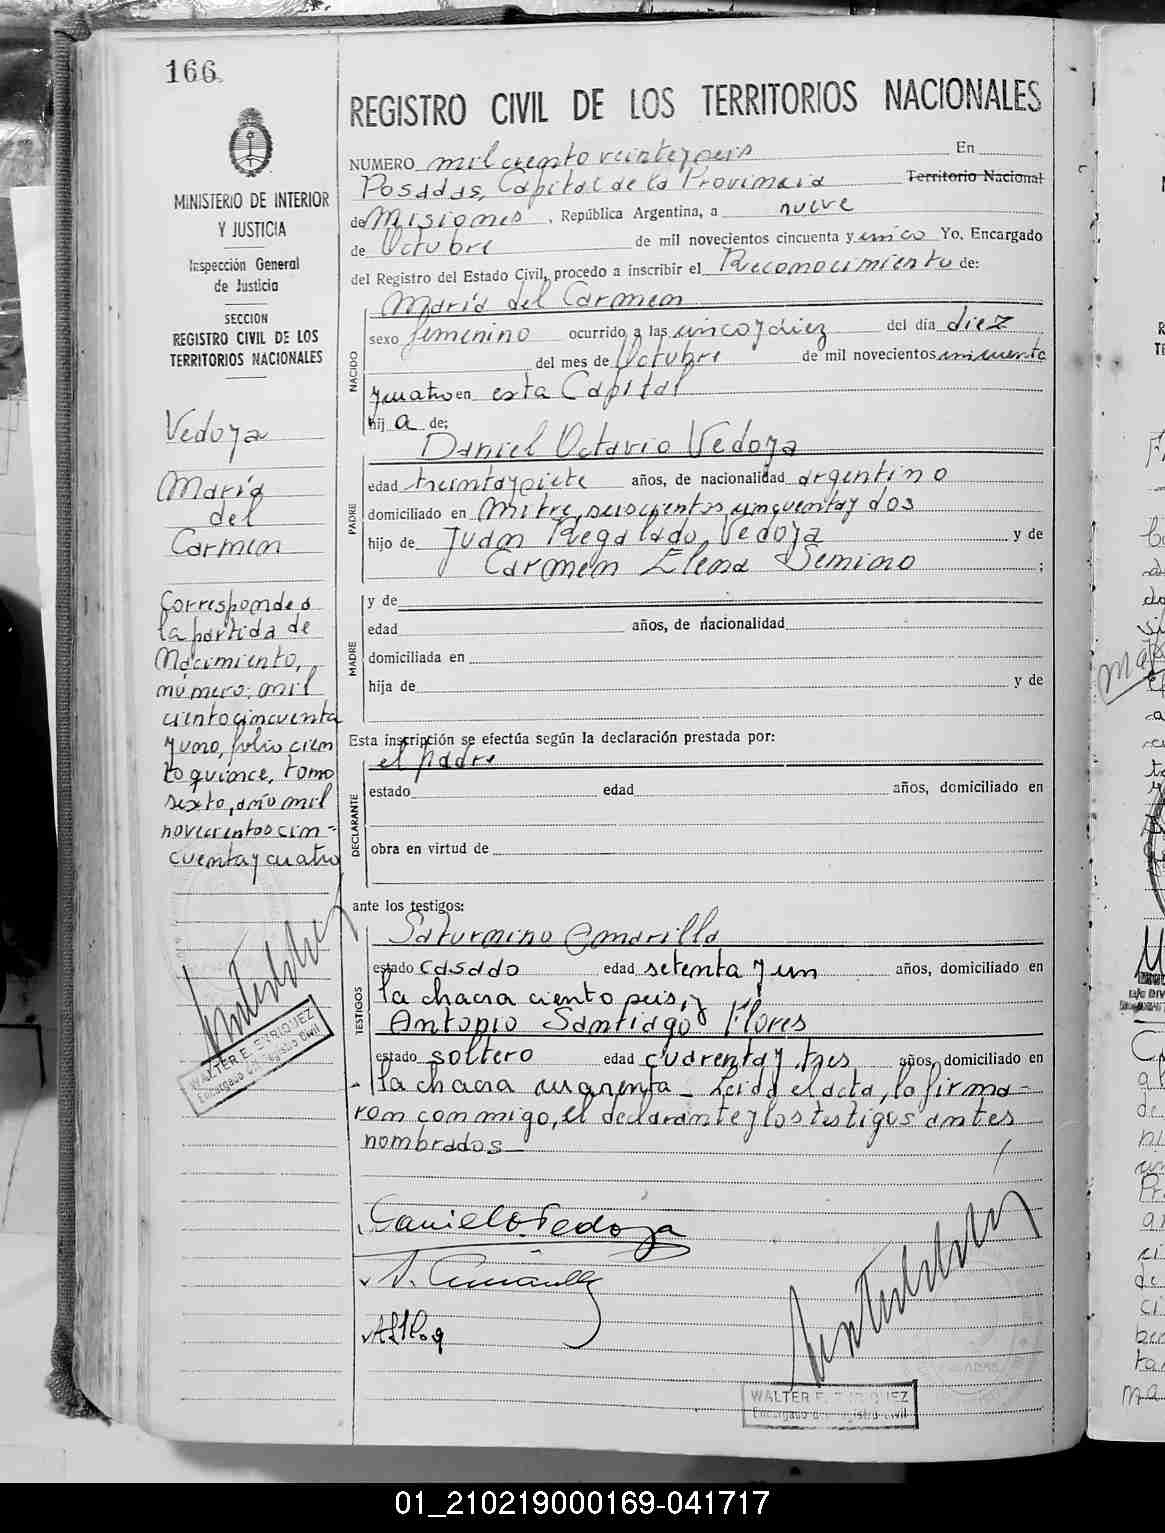 166
MINISTERIO DE INTERIOR
Y JUSTICIA
Inspección General
de Justicia
SECCION
REGISTRO CIVIL DE LOS
TERRITORIOS NACIONALES
Vedoya
María
del
Carmen
Corresponde a
la partida de
Nacimiento,
número, mil
ciento cincuenta
y uno, folio cien
to quince, tomo
sexto, año mil
novecientos cin=
cuenta y cuatro
WALTER E. ENRIQUEZ
Encargado del Registro Civil
REGISTRO CIVIL DE LOS TERRITORIOS NACIONALES
NUMERO mil ciento veinte y seis En
Posadas, Capital de la Provincia Territorio Nacional
de Misiones, República Argentina, a nueve
de Octubre de mil novecientos cincuenta y cinco Yo, Encargado
del Registro del Estado Civil, procedo a inscribir el Reconocimiento de:
María del Carmen
NACIDO
sexo femenino ocurrido a las cinco y diez del día diez
del mes de Octubre de mil novecientos cincuenta
y cuatro en esta Capital
hij a de:
Daniel Octavio Vedoya
PADRE
edad treinta y siete años, de nacionalidad argentino
domiciliado en Mitre, seiscientos cincuenta y dos
hijo de Juan Regalado Vedoya y de
Carmen Elena Semino ;
MADRE
y de
edad años, de nacionalidad
domiciliada en
hija de y de
Esta inscripción se efectúa según la declaración prestada por:
el padre
DECLARANTE
estado edad años, domiciliado en
obra en virtud de
ante los testigos:
Saturnino Amarilla
TESTIGOS
estado casado edad setenta y un años, domiciliado en
la chacra ciento seis, y
Antonio Santiago Flores
estado soltero edad cuarenta y tres años, domiciliado en
la chacra cuarenta_ Leída el acta, la firma=
ron conmigo, el declarante y los testigos antes
nombrados_
Daniel O. Vedoya
WALTER E. ENRIQUEZ
Encargado del Registro Civil
01_210219000169-041717